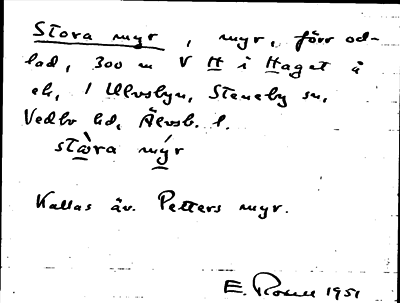 Stora myr, myr, förr od-
lad, 300 m V H i Haget å
ek, 1 Ulvsbyn, Steneby sn,
Vedbo hd, Älvsb. l.
stòra mýr
Kallas äv. Petters myr.
E. 1951